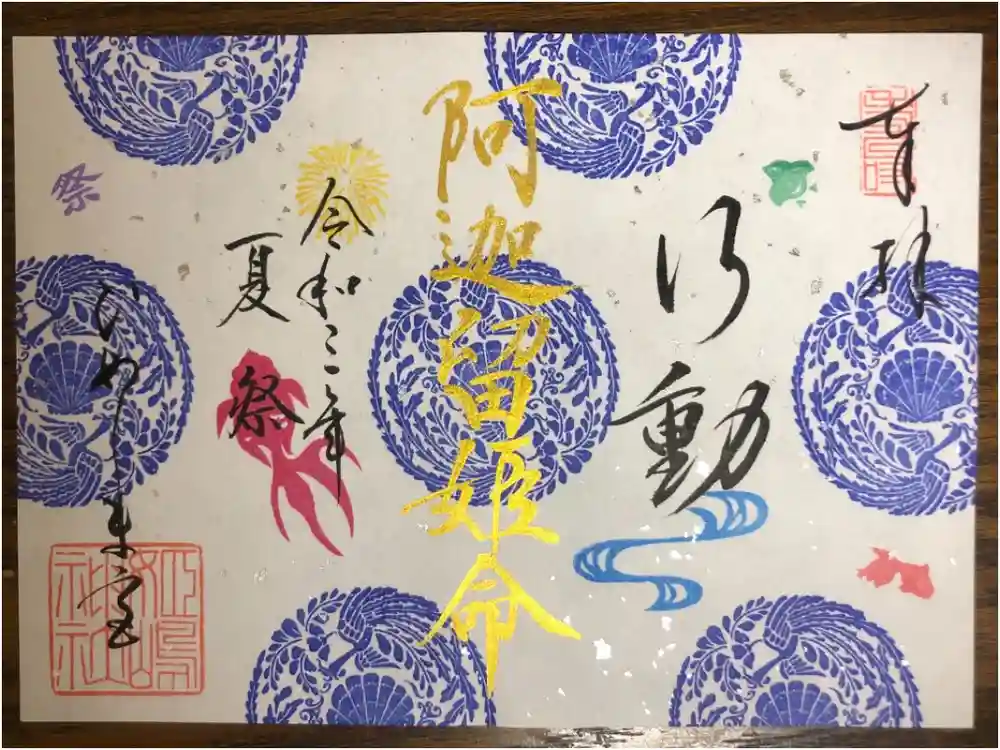 奉拝
行動
阿迦留姫命
令和三年
夏祭
祭
姫嶋神社